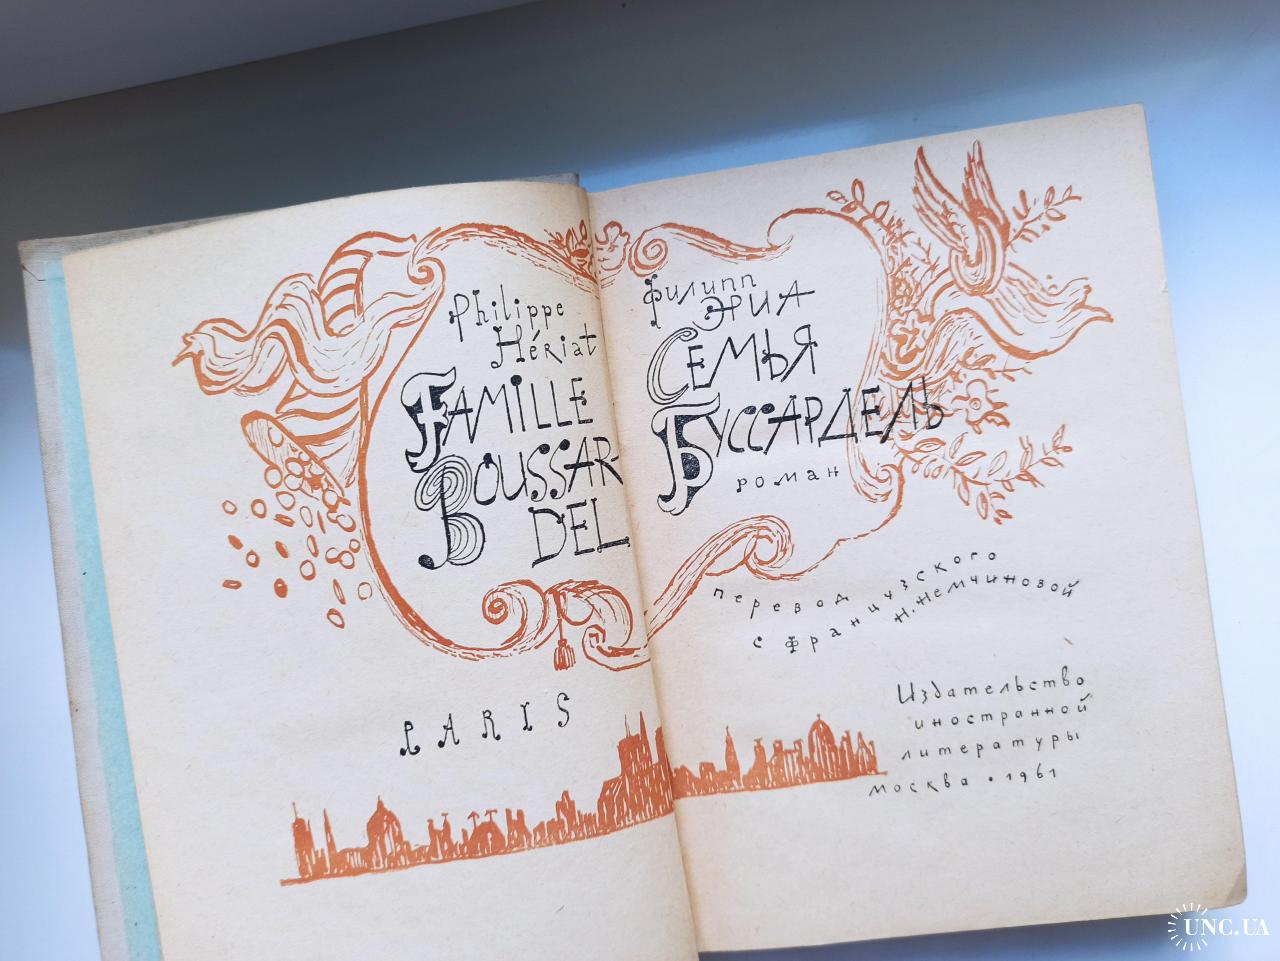 Philippe
Hériat
FAMILLE
BOUSSAR-
DEL
PARIS
Филипп
ЭРИА
СЕМЬЯ
БУССАРДЕЛЬ
роман
перевод
с французского
Н. Немчиновой
Издательство
иностранной
литературы
Москва • 1961
UNC.UA